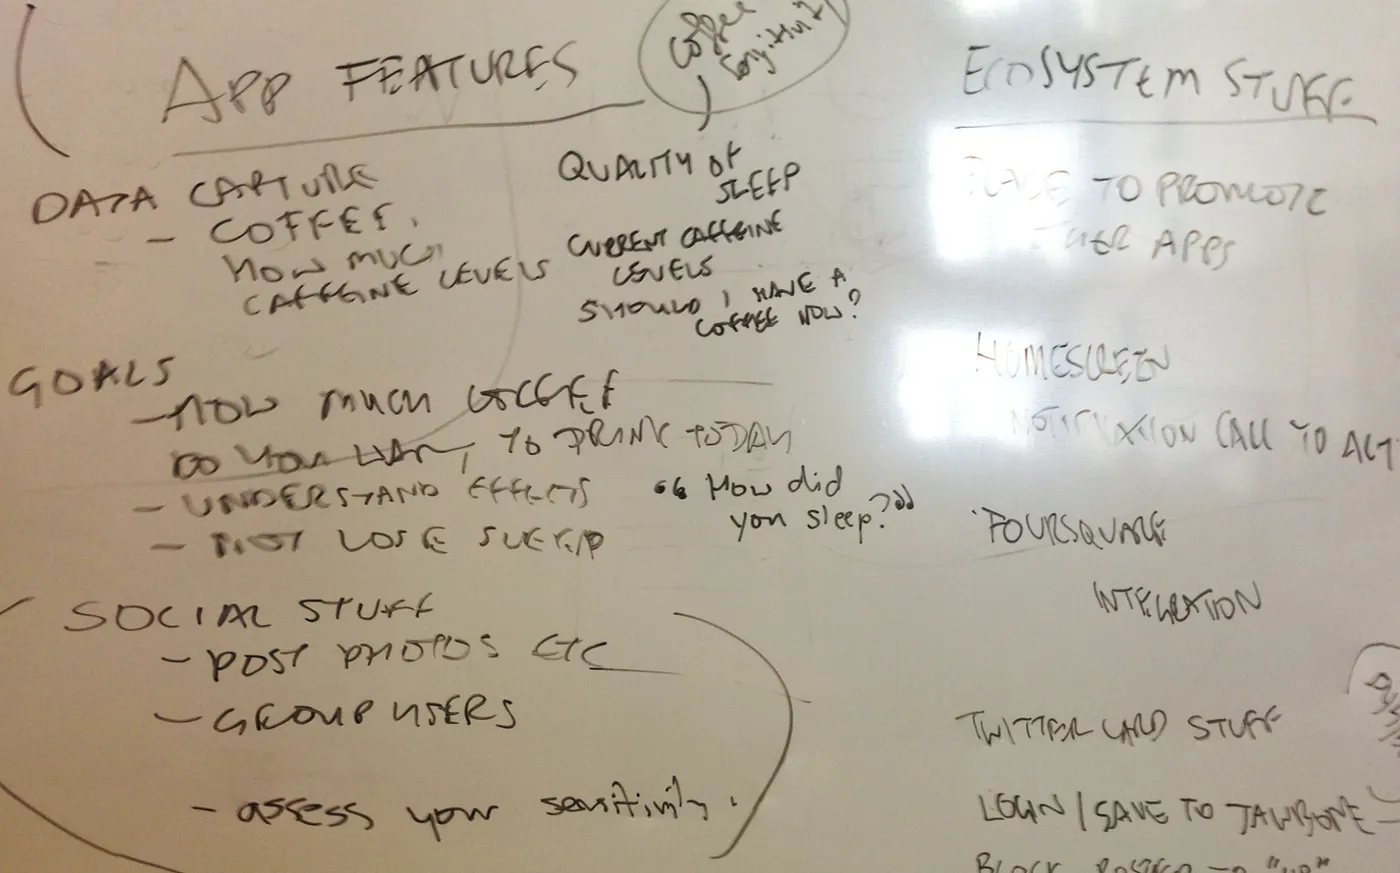 APP FEATURES
Coffee
Sensitivity
DATA CAPTURE
- COFFEE.
HOW MUCH
CAFFEINE LEVELS
QUALITY OF
SLEEP
CURRENT CAFFEINE
LEVELS
SHOULD I HAVE A
COFFEE NOW?
GOALS
- HOW MUCH COFFEE
DO YOU WANT TO DRINK TODAY
- UNDERSTAND EFFECTS
- NOT LOSE SLEEP
"How did
you sleep?"
SOCIAL STUFF
- POST PHOTOS ETC
- GROUP USERS
- assess your sensitivity.
ECOSYSTEM STUFF
PLACE TO PROMOTE
OTHER APPS
HOMESCREEN
NOTIFICATION CALL TO ACT
FOURSQUARE
INTEGRATION
TWITTER CARD STUFF
LOGIN / SAVE TO JAWBONE
"UP"